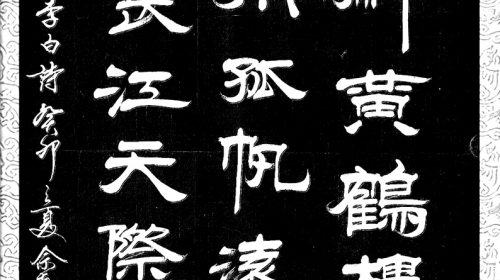 黃鶴樓
孤帆遠
長江天際
李白詩癸卯之夏余